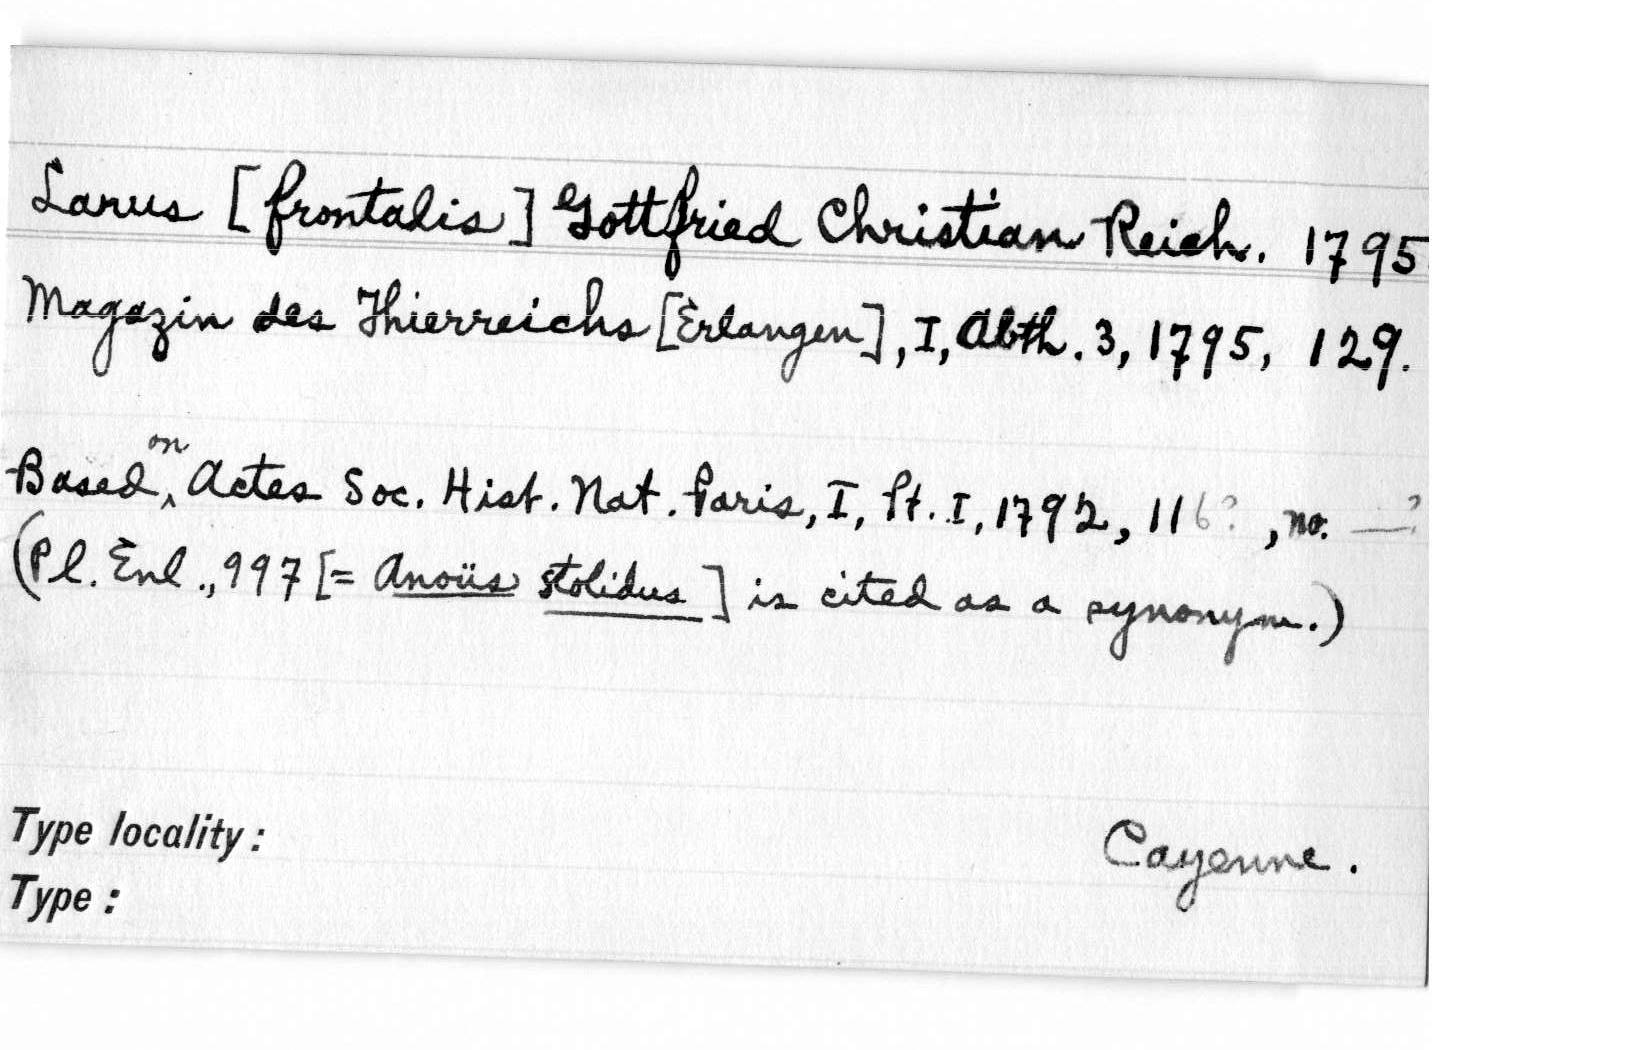 Larus [frontalis] Gottfried Christian Reich. 1795
Magazin des Thierreichs [Erlangen], I, Abth. 3, 1795, 129.
Based on Actes Soc. Hist. Nat. Paris, I, Pt. I, 1792, 116? , no. —?
(Pl. Enl., 997 [= Anoüs stolidus] is cited as a synonym.)
Type locality: Cayenne.
Type: